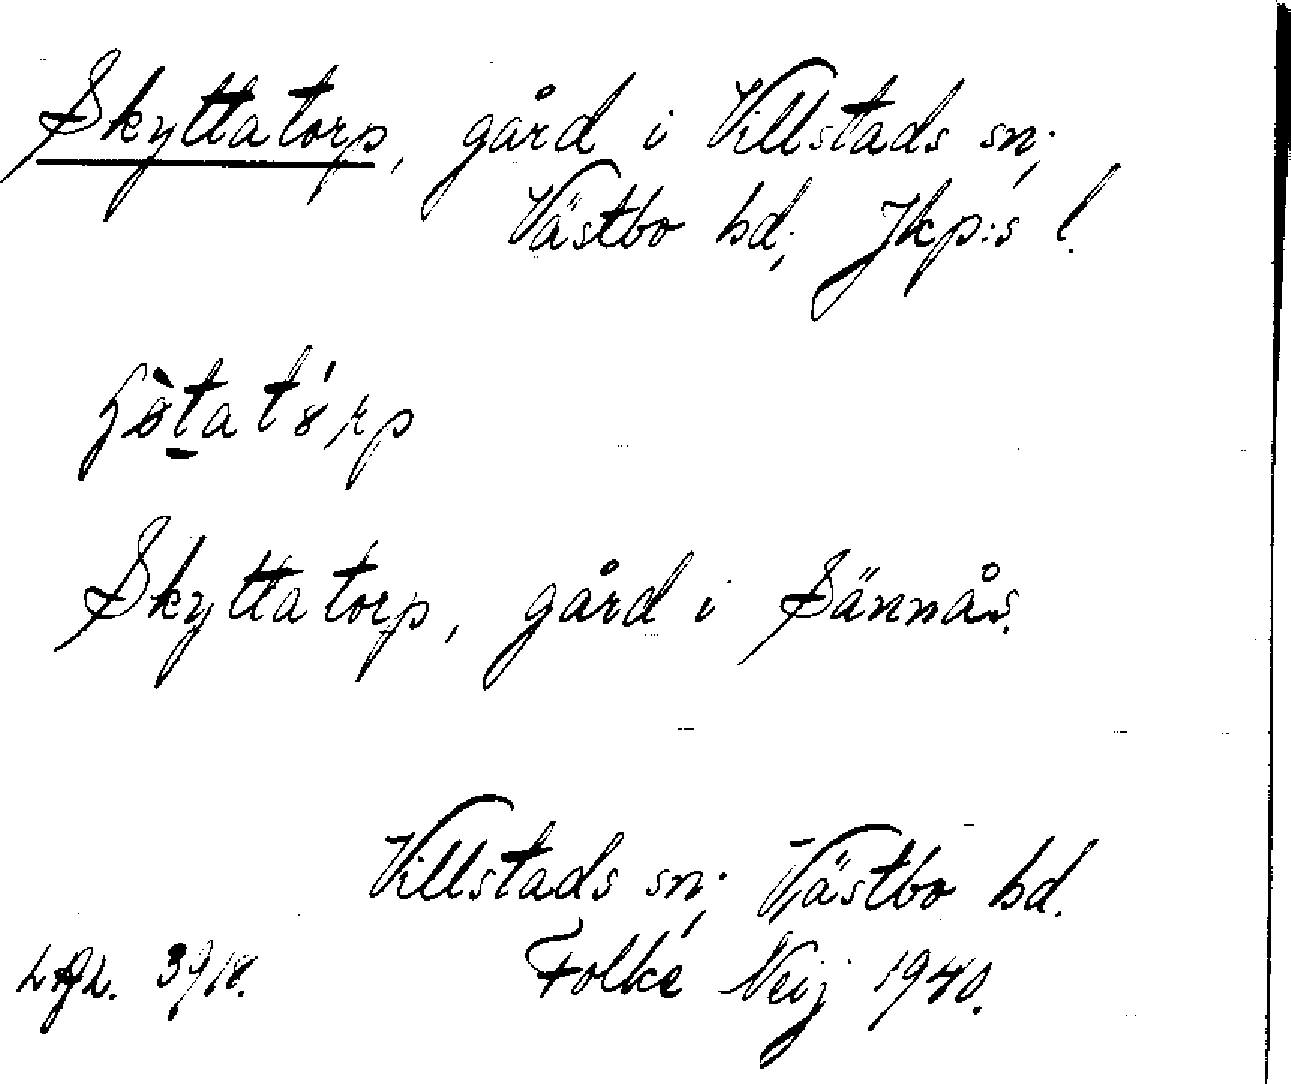 Skyttatorp, gård i Villstads sn;
Västbo hd; Jkp:s l.
Skyttatorp, gård i Sännås.
Villstads sn; Västbo hd.
39/18. Folke Neij 1940.